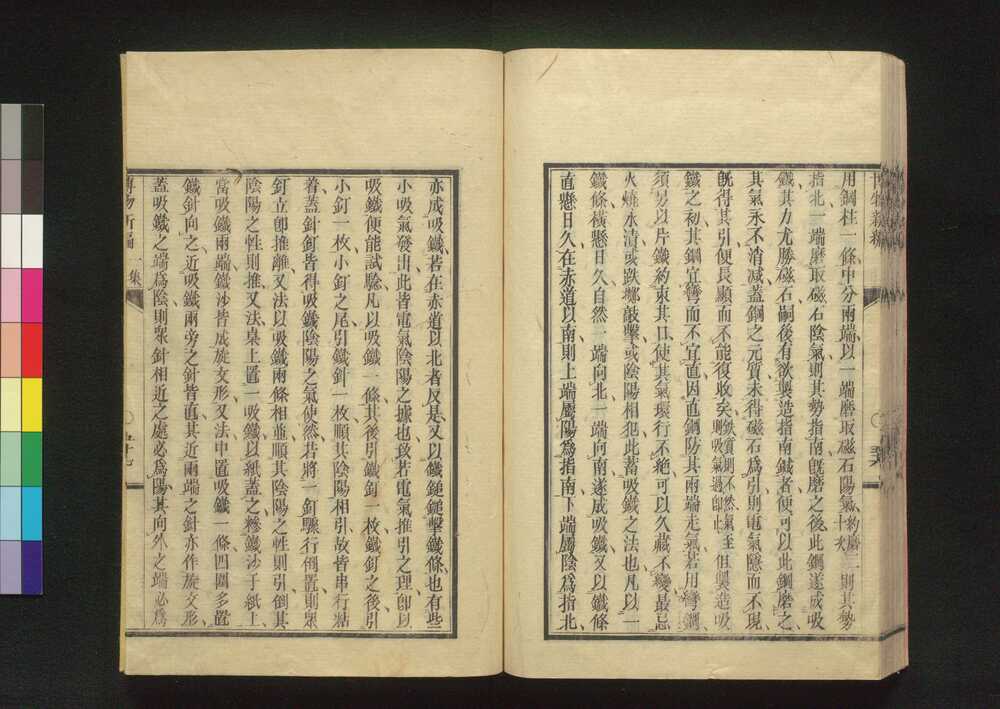 用鋼柱一條、中分兩端、以一端磨取磁石陽氣、約磨二十次則其勢
指北、一端磨取磁石陰氣、則其勢指南、旣磨之後、此鋼遂成吸
鐵、其力尤勝磁石、嗣後有欲製造指南鍼者、便可以此鋼磨之、
其氣永不消減、蓋鋼之元質、未得磁石爲引、則電氣隱而不現、
旣得其引、便長顯而不能復收矣、鉄質則不然、氣至則吸、氣過卽止、但製造吸
鐵之初、其鋼宜彎而不宜直、因直鋼防其兩端走氣、若用彎鋼、
須另以片鐵約束其口、使其氣環行不絶、可以久藏不變、最忌
火燒水漬、或跌擲敲擊、或陰陽相犯、此蓄吸鐵之法也、凡以一
鐵條橫懸日久、自然一端向北、一端向南、遂成吸鐵、又以鐵條
直懸日久、在赤道以南、則上端屬陽爲指南、下端屬陰爲指北、
亦成吸鐵、若在赤道以北者反是、又以鐵鎚鎚擊鐵條、也有些
小吸氣發出、此皆電氣陰陽之據也、故若電氣推引之理、卽以
吸鐵便能試驗、凡以吸鐵一條、其後引鐵釘一枚、鐵釘之後、引
小釘一枚、小釘之尾、引鐵針一枚、順其陰陽相引、故皆串行粘
着、蓋針釘皆得吸鐵陰陽之氣使然、若將一釘驟行倒置、則衆
釘立卽推離、又法、以吸鐵兩條相並、順其陰陽之性則引、倒其
陰陽之性則推、又法、桌上置一吸鐵、以紙蓋之、糝鐵沙于紙上、
當吸鐵兩端、鐵沙皆成旋文形、又法、中置吸鐵一條、四圍多置
鐵針向之、近吸鐵兩旁之針皆直、其近兩端之針、亦作旋文形、
蓋吸鐵之端爲陰、則衆針相近之處必爲陽、其向外之端必爲
博物新編 一集